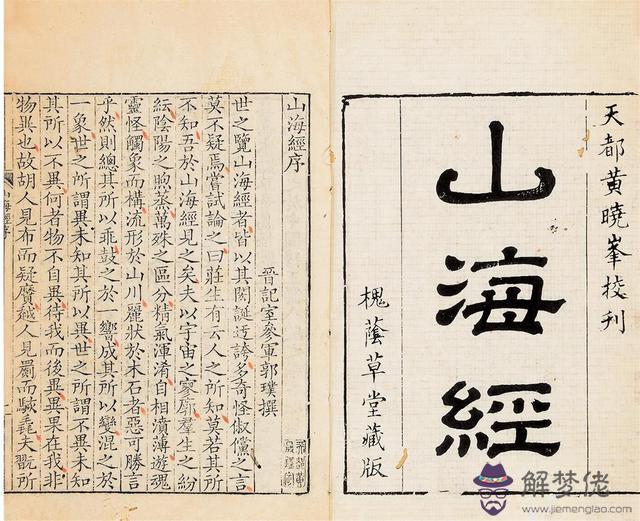 天都黃曉峯校刊
山海經
槐蔭草堂藏版
山海經序
晉記室參軍郭璞撰
世之覽山海經者皆以其閎誕迂誇多奇怪俶儻之言
莫不疑焉嘗試論之曰莊生有云人之所知莫若其所
不知吾於山海經見之矣夫以宇宙之寥廓羣生之紛
紜陰陽之煦蒸萬殊之區分精氣渾淆自相濆薄遊魂
靈怪觸象而構流形於山川麗狀於木石者惡可勝言
乎然則總其所以乖鼓之於一響成其所以變混之於
一象世之所謂異未知其所以異世之所謂不異未知
其所以不異何者物不自異待我而後異異果在我非
物異也故胡人見布而疑黂越人見罽而駭毳夫翫所
山海經序
解梦佬
www.jiemenglao.com